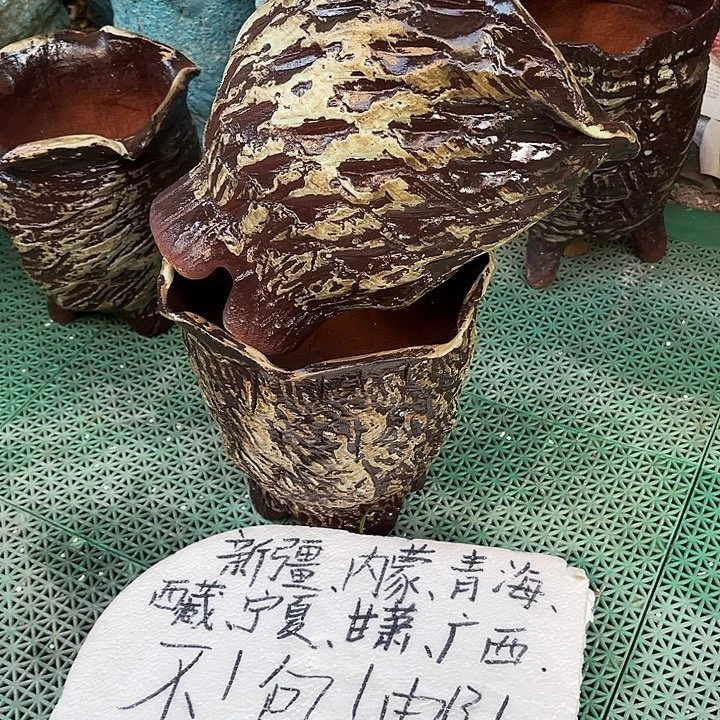 新疆、内蒙、青海、
西藏、宁夏、甘萧、广西.
不!包!邮!